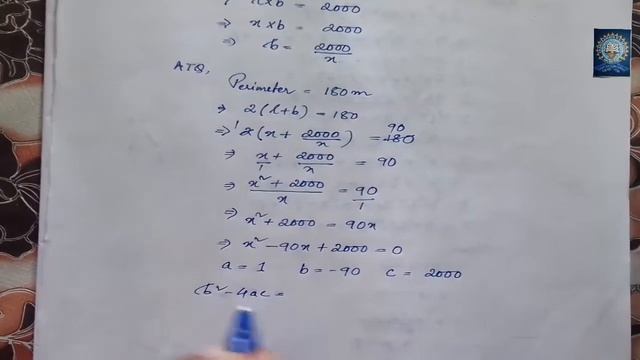 ⇒ x × b = 2000
⇒ b = 2000/x
ATQ,
Perimeter = 180 m
⇒ 2(l+b) = 180
⇒ 2(x + 2000/x) = 180 90
⇒ x/1 + 2000/x = 90
⇒ x² + 2000/x = 90/1
⇒ x² + 2000 = 90x
⇒ x² - 90x + 2000 = 0
a = 1 b = -90 c = 2000
b² - 4ac =